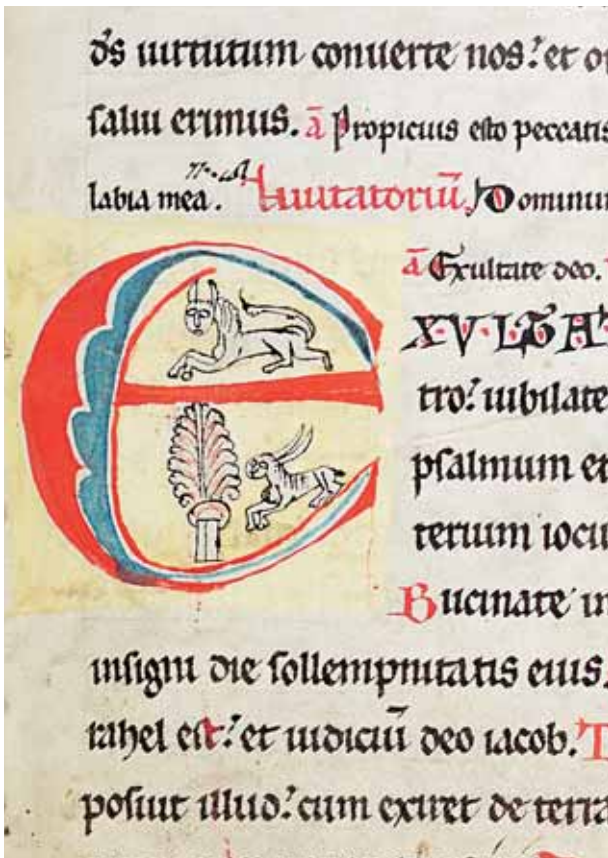 d̄s uirtutum conuerte nos: et
salui erimus. ā Propicius esto peccatis
labia mea. Inuitatoriū. Dominum
ā Exultate deo.
EXVLTA
tro: iubilate
psalmum et
terium iocu
Bucinate in
insigni die sollempnitatis eius.
rahel est: et iudiciū deo iacob.
posuit illud: cum exiret de terra